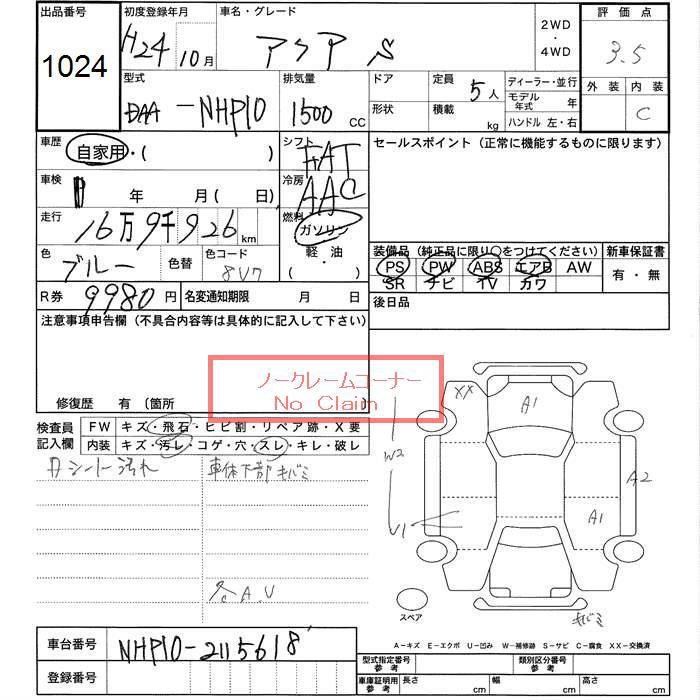 出品番号 初度登録年月 車名・グレード 2WD・4WD 評価点
1024 H24 10月 アクア S 3.5
外装 内装
C
型式 排気量 ドア 定員 ディーラー・並行
DAA-NHP10 1500 CC 5人 モデル年式 年
形状 積載 kg ハンドル 左・右
車歴 自家用・( ) シフト FAT セールスポイント (正常に機能するものに限ります)
車検 年 月 (日) 冷房 AAC
走行 16万9千926 km 燃料 ガソリン
軽・油
( ・ )
色 ブルー 色替 色コード 8V7
装備品 (純正品に限り○をつけてください) 新車保証書
PS PW ABS エアB AW 有・無
SR ナビ TV カワ
R券 9980円 名変通知期限 月 日 後日品
注意事項申告欄 (不具合内容等は具体的に記入して下さい)
ノークレームコーナー
No Claim
修復歴 有 (箇所 )
検査員記入欄 FW キズ・飛石・ヒビ割・リペア跡・X要
内装 キズ・汚レ・コゲ・穴・スレ・キレ・破レ
シート汚れ 車体下部サビミ
各A.U
XX
A1
W2
A2
U1
A1
サビミ
スペア
A-キズ E-エクボ U-凹み W-補修跡 S-サビ C-腐食 XX-交換済
車台番号 NHP10-2115618
登録番号
型式指定番号 参考 類別区分番号 参考
車庫証明用 参考 長さ cm 幅 cm 高さ cm